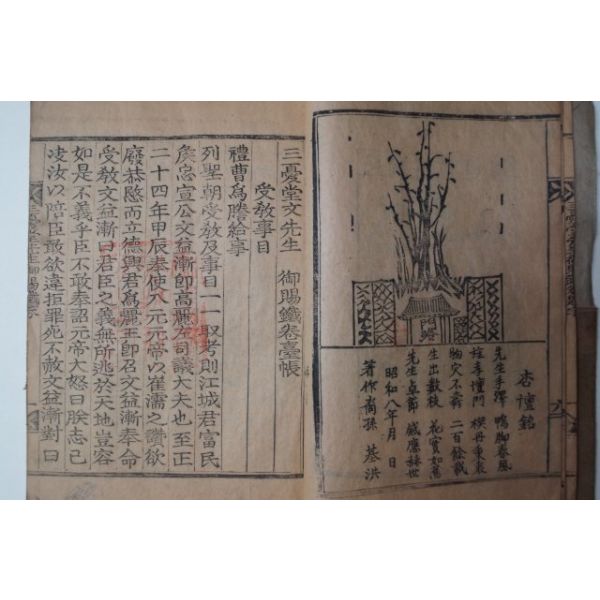 杏壇銘
先生手躅 鴨脚春風
旌孝壇門
二百餘載
生出數枝 花實如舊
先生卓節 感應赫世
昭和八年月 日
著作裔孫 基洪
三憂堂文先生 御賜鐵卷臺帳
受敎事目
禮曹爲謄給事
列聖朝受敎及事目一一取考則江城君富民
矦忠宣公文益漸卽高麗左司議大夫也至正
二十四年甲辰奉使入元元帝以崔濡之讚欲
廢恭愍而立德興君爲麗王卽召文益漸奉命
受敎文益漸曰君臣之義無所逃於天地豈容
如是不義乎臣不敢奉詔元帝大怒曰朕志已
凌汝以陪臣敢欲違拒罪死不赦文益漸對曰